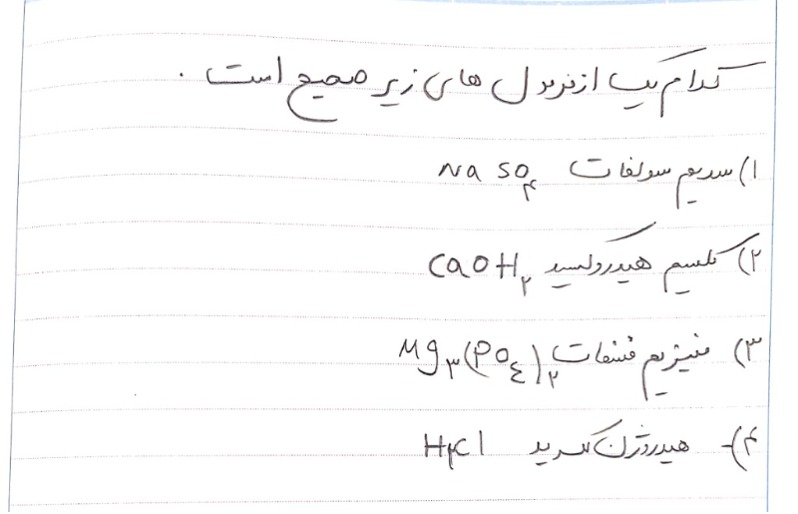 کدام یک از فرمول های زیر صحیح است .
۱) سدیم سولفات Na SO۴
۲) کلسیم هیدروکسید CaOH۲
۳) منیزیم فسفات Mg۳(PO٤)۲
۴)- هیدروژن کلرید H۲Cl